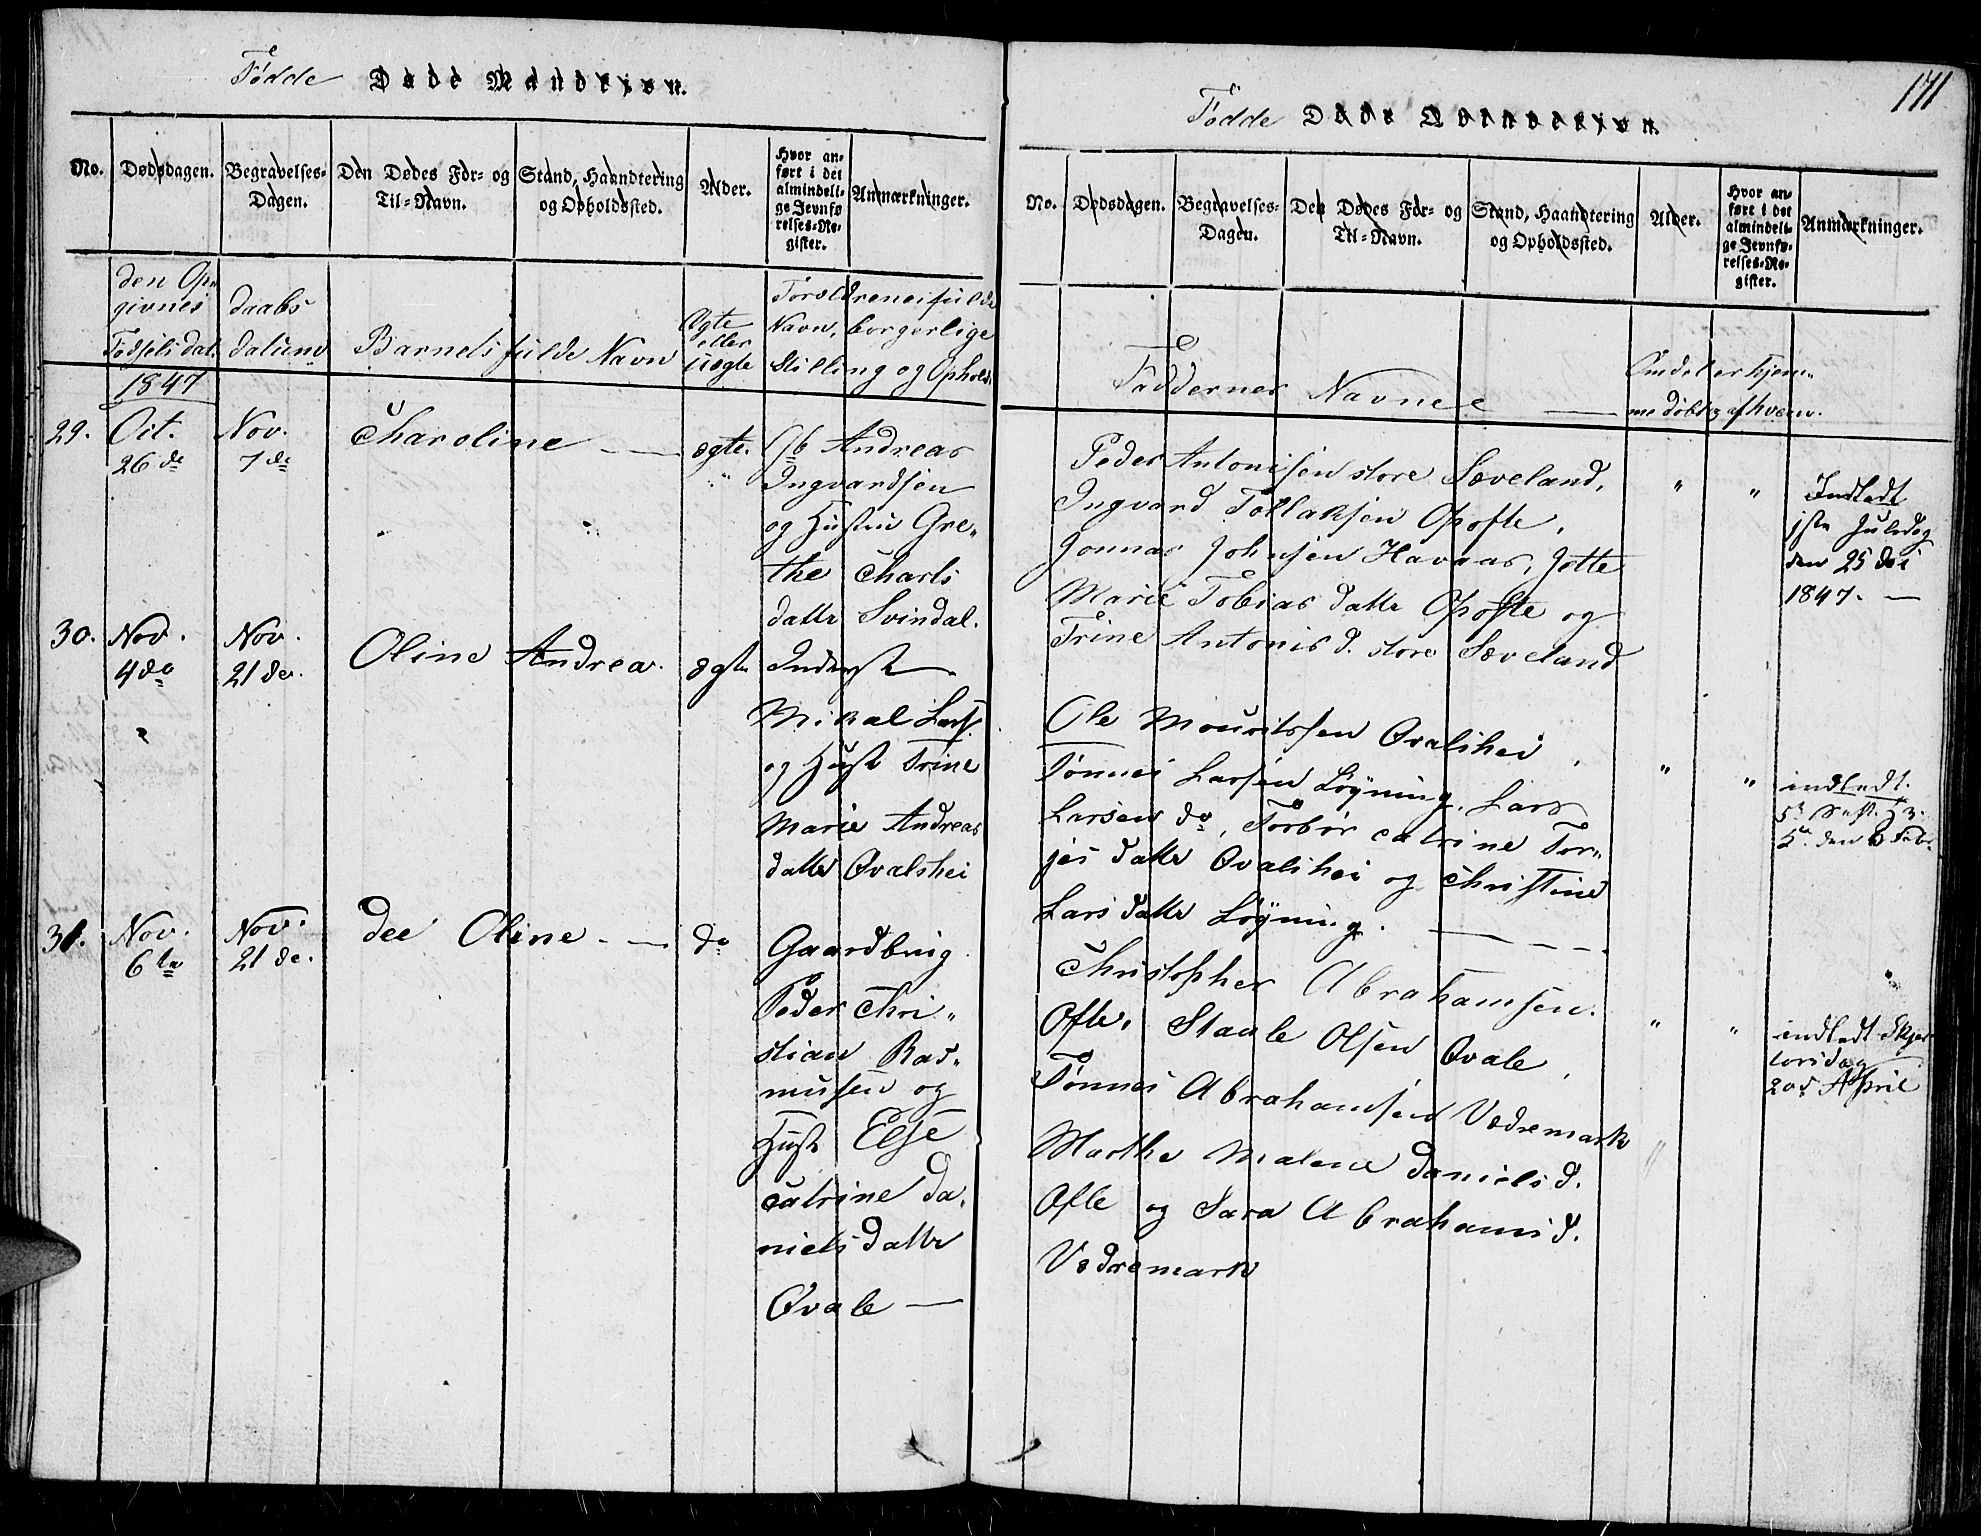 Fødde Døde Mandkion.
No.
Dødsdagen.
Begravelses-
Dagen.
Den Dødes For- og
Til-Navn.
Stand, Haandtering
og Opholdssted.
Alder.
Hvor an-
ført i det
almindeli-
ge Jevnfø
relses-Re-
gister.
Anmærkninger.
den Op-
givnes
Fødsels dat.
daabs
datum
Barnets fulde Navn
Ægte
eller
uægte
Forældrenes fulde
Navn, borgerlige
Stilling og Ophold
1847
29.
Oct.
26 de
Nov.
7 de
Charoline —
ægte.
Gb Andreas
Ingvardsen
og Hustru Gre-
the Charls
datter Svindal.
30.
Nov.
4 de
Nov.
21 de.
Oline Andrea.
ægte
Inderst
Mikal Lars.
og Hust Trine
Marie Andreas
datter Qvalshei
31.
Nov.
6 te
Nov.
21 de.
Dee Oline — —
do
Gaardbrug
Peder Chri-
stian Ras-
musen og
Hust Else
Catrine Da-
niels datter
Qvale —
171
Fødde Døde Qvindekion.
No.
Dødsdagen.
Begravelses-
Dagen.
Den Dødes For- og
Til-Navn.
Stand, Haandtering
og Opholdssted.
Alder.
Hvor an-
ført i det
almindeli-
ge Jevnfø-
relses-Re-
gister.
Anmærkninger.
Faddernes Navne —
Om det er hjem-
me døbt og af hvem.
Peder Antonisen store Sæveland,
Ingvard Tollaksen Opofte,
Jonnas Johnsen Havaas, Jotte
Marie Tobias datter Opofte og
Trine Antonis d. store Sæveland
" "
Indledt
1ste Juledag
den 25 de
1847. —
Ole Mouritssen Qvalshei,
Tønnes Larsen Løyning, Lars
Larsen do, Torbor Catrine Tor-
jes datter Qvalshei og Christine
Lars datter Løyning. — — —
" "
indledt.
den 6 Febr.
Christopher Abrahamsen
Ofte, Staale Olsen Qvale,
Tønnes Abrahamsen Vedremark
Marthe Malene Daniels d.
Ofte og Sara Abrahams d.
Vedremark
" "
indledt Skjær
torsdag
20 d. April